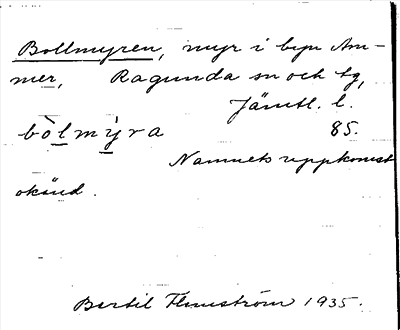 Bollmyren, myr i byn Am-
mer, Ragunda sn och tg,
Jämtl. l.
bòlmỳra 85.
Namnets uppkomst
okänd.
Bertil Flemström 1935.